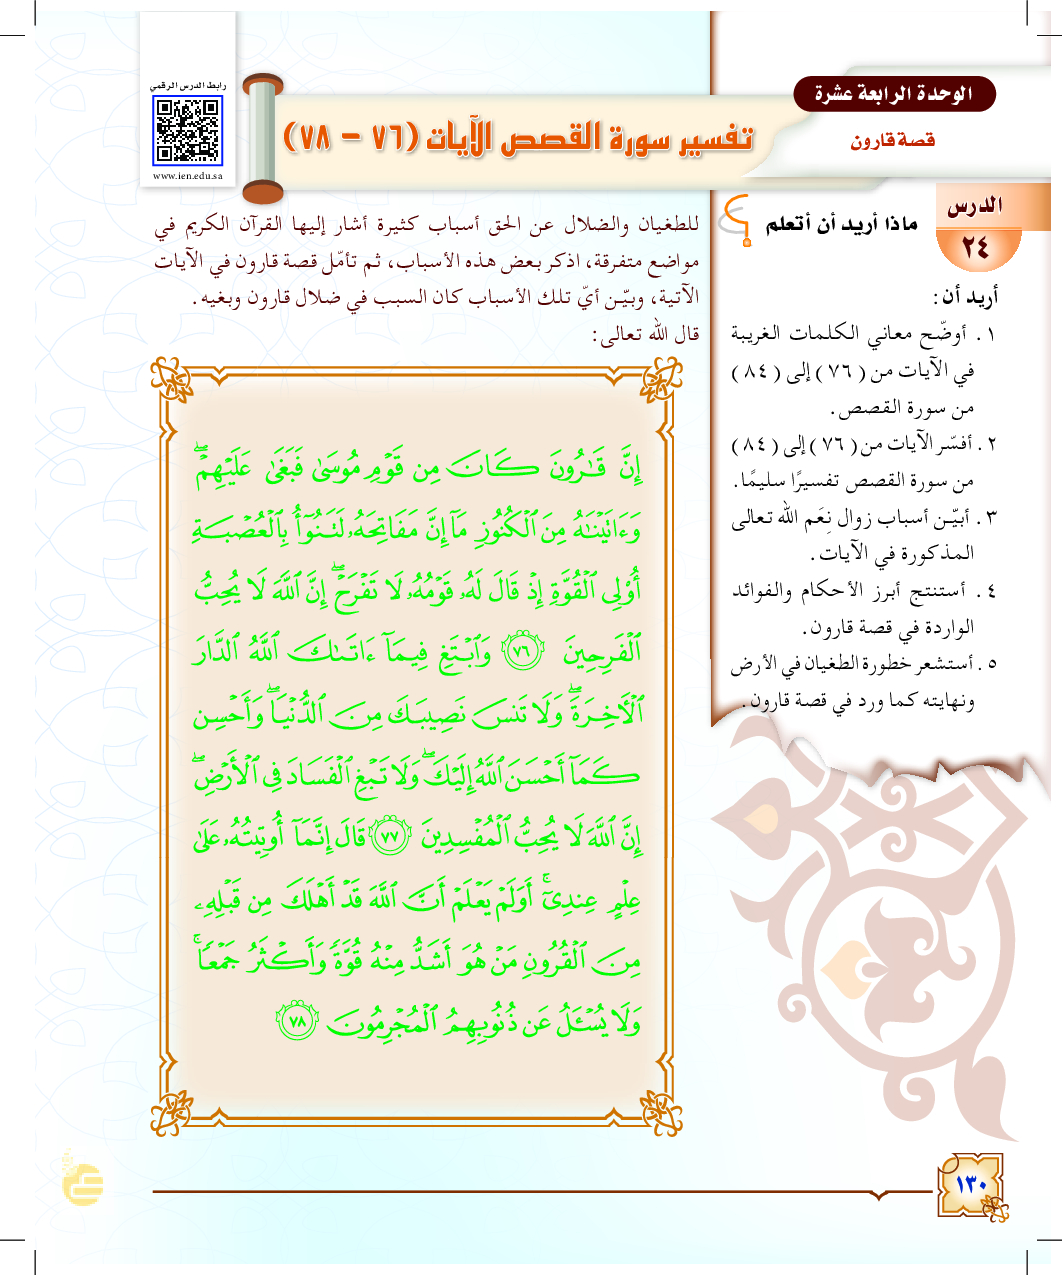 رابط الدرس الرقمي
www.ien.edu.sa
الوحدة الرابعة عشرة
قصة قارون
تفسير سورة القصص الآيات (٧٦ – ٧٨)
الدرس
٢٤
ماذا أريد أن أتعلم
أريد أن:
١. أوضّح معاني الكلمات الغريبة
في الآيات من (٧٦) إلى (٨٤)
من سورة القصص.
٢. أفسّر الآيات من (٧٦) إلى (٨٤)
من سورة القصص تفسيرًا سليمًا.
٣. أبيّن أسباب زوال نِعَم الله تعالى
المذكورة في الآيات.
٤. أستنتج أبرز الأحكام والفوائد
الواردة في قصة قارون.
٥. أستشعر خطورة الطغيان في الأرض
ونهايته كما ورد في قصة قارون.
للطغيان والضلال عن الحق أسباب كثيرة أشار إليها القرآن الكريم في
مواضع متفرقة، اذكر بعض هذه الأسباب، ثم تأمّل قصة قارون في الآيات
الآتية، وبيّن أيّ تلك الأسباب كان السبب في ضلال قارون وبغيه.
قال الله تعالى:
إِنَّ قَٰرُونَ كَانَ مِن قَوۡمِ مُوسَىٰ فَبَغَىٰ عَلَيۡهِمۡۖ
وَءَاتَيۡنَٰهُ مِنَ ٱلۡكُنُوزِ مَآ إِنَّ مَفَاتِحَهُۥ لَتَنُوٓأُ بِٱلۡعُصۡبَةِ
أُوْلِي ٱلۡقُوَّةِ إِذۡ قَالَ لَهُۥ قَوۡمُهُۥ لَا تَفۡرَحۡۖ إِنَّ ٱللَّهَ لَا يُحِبُّ
ٱلۡفَرِحِينَ ٧٦ وَٱبۡتَغِ فِيمَآ ءَاتَىٰكَ ٱللَّهُ ٱلدَّارَ
ٱلۡأٓخِرَةَۖ وَلَا تَنسَ نَصِيبَكَ مِنَ ٱلدُّنۡيَاۖ وَأَحۡسِن
كَمَآ أَحۡسَنَ ٱللَّهُ إِلَيۡكَۖ وَلَا تَبۡغِ ٱلۡفَسَادَ فِي ٱلۡأَرۡضِۖ
إِنَّ ٱللَّهَ لَا يُحِبُّ ٱلۡمُفۡسِدِينَ ٧٧ قَالَ إِنَّمَآ أُوتِيتُهُۥ عَلَىٰ
عِلۡمٍ عِندِيٓۚ أَوَلَمۡ يَعۡلَمۡ أَنَّ ٱللَّهَ قَدۡ أَهۡلَكَ مِن قَبۡلِهِۦ
مِنَ ٱلۡقُرُونِ مَنۡ هُوَ أَشَدُّ مِنۡهُ قُوَّةٗ وَأَكۡثَرُ جَمۡعٗاۚ
وَلَا يُسۡـَٔلُ عَن ذُنُوبِهِمُ ٱلۡمُجۡرِمُونَ ٧٨
١٣٠